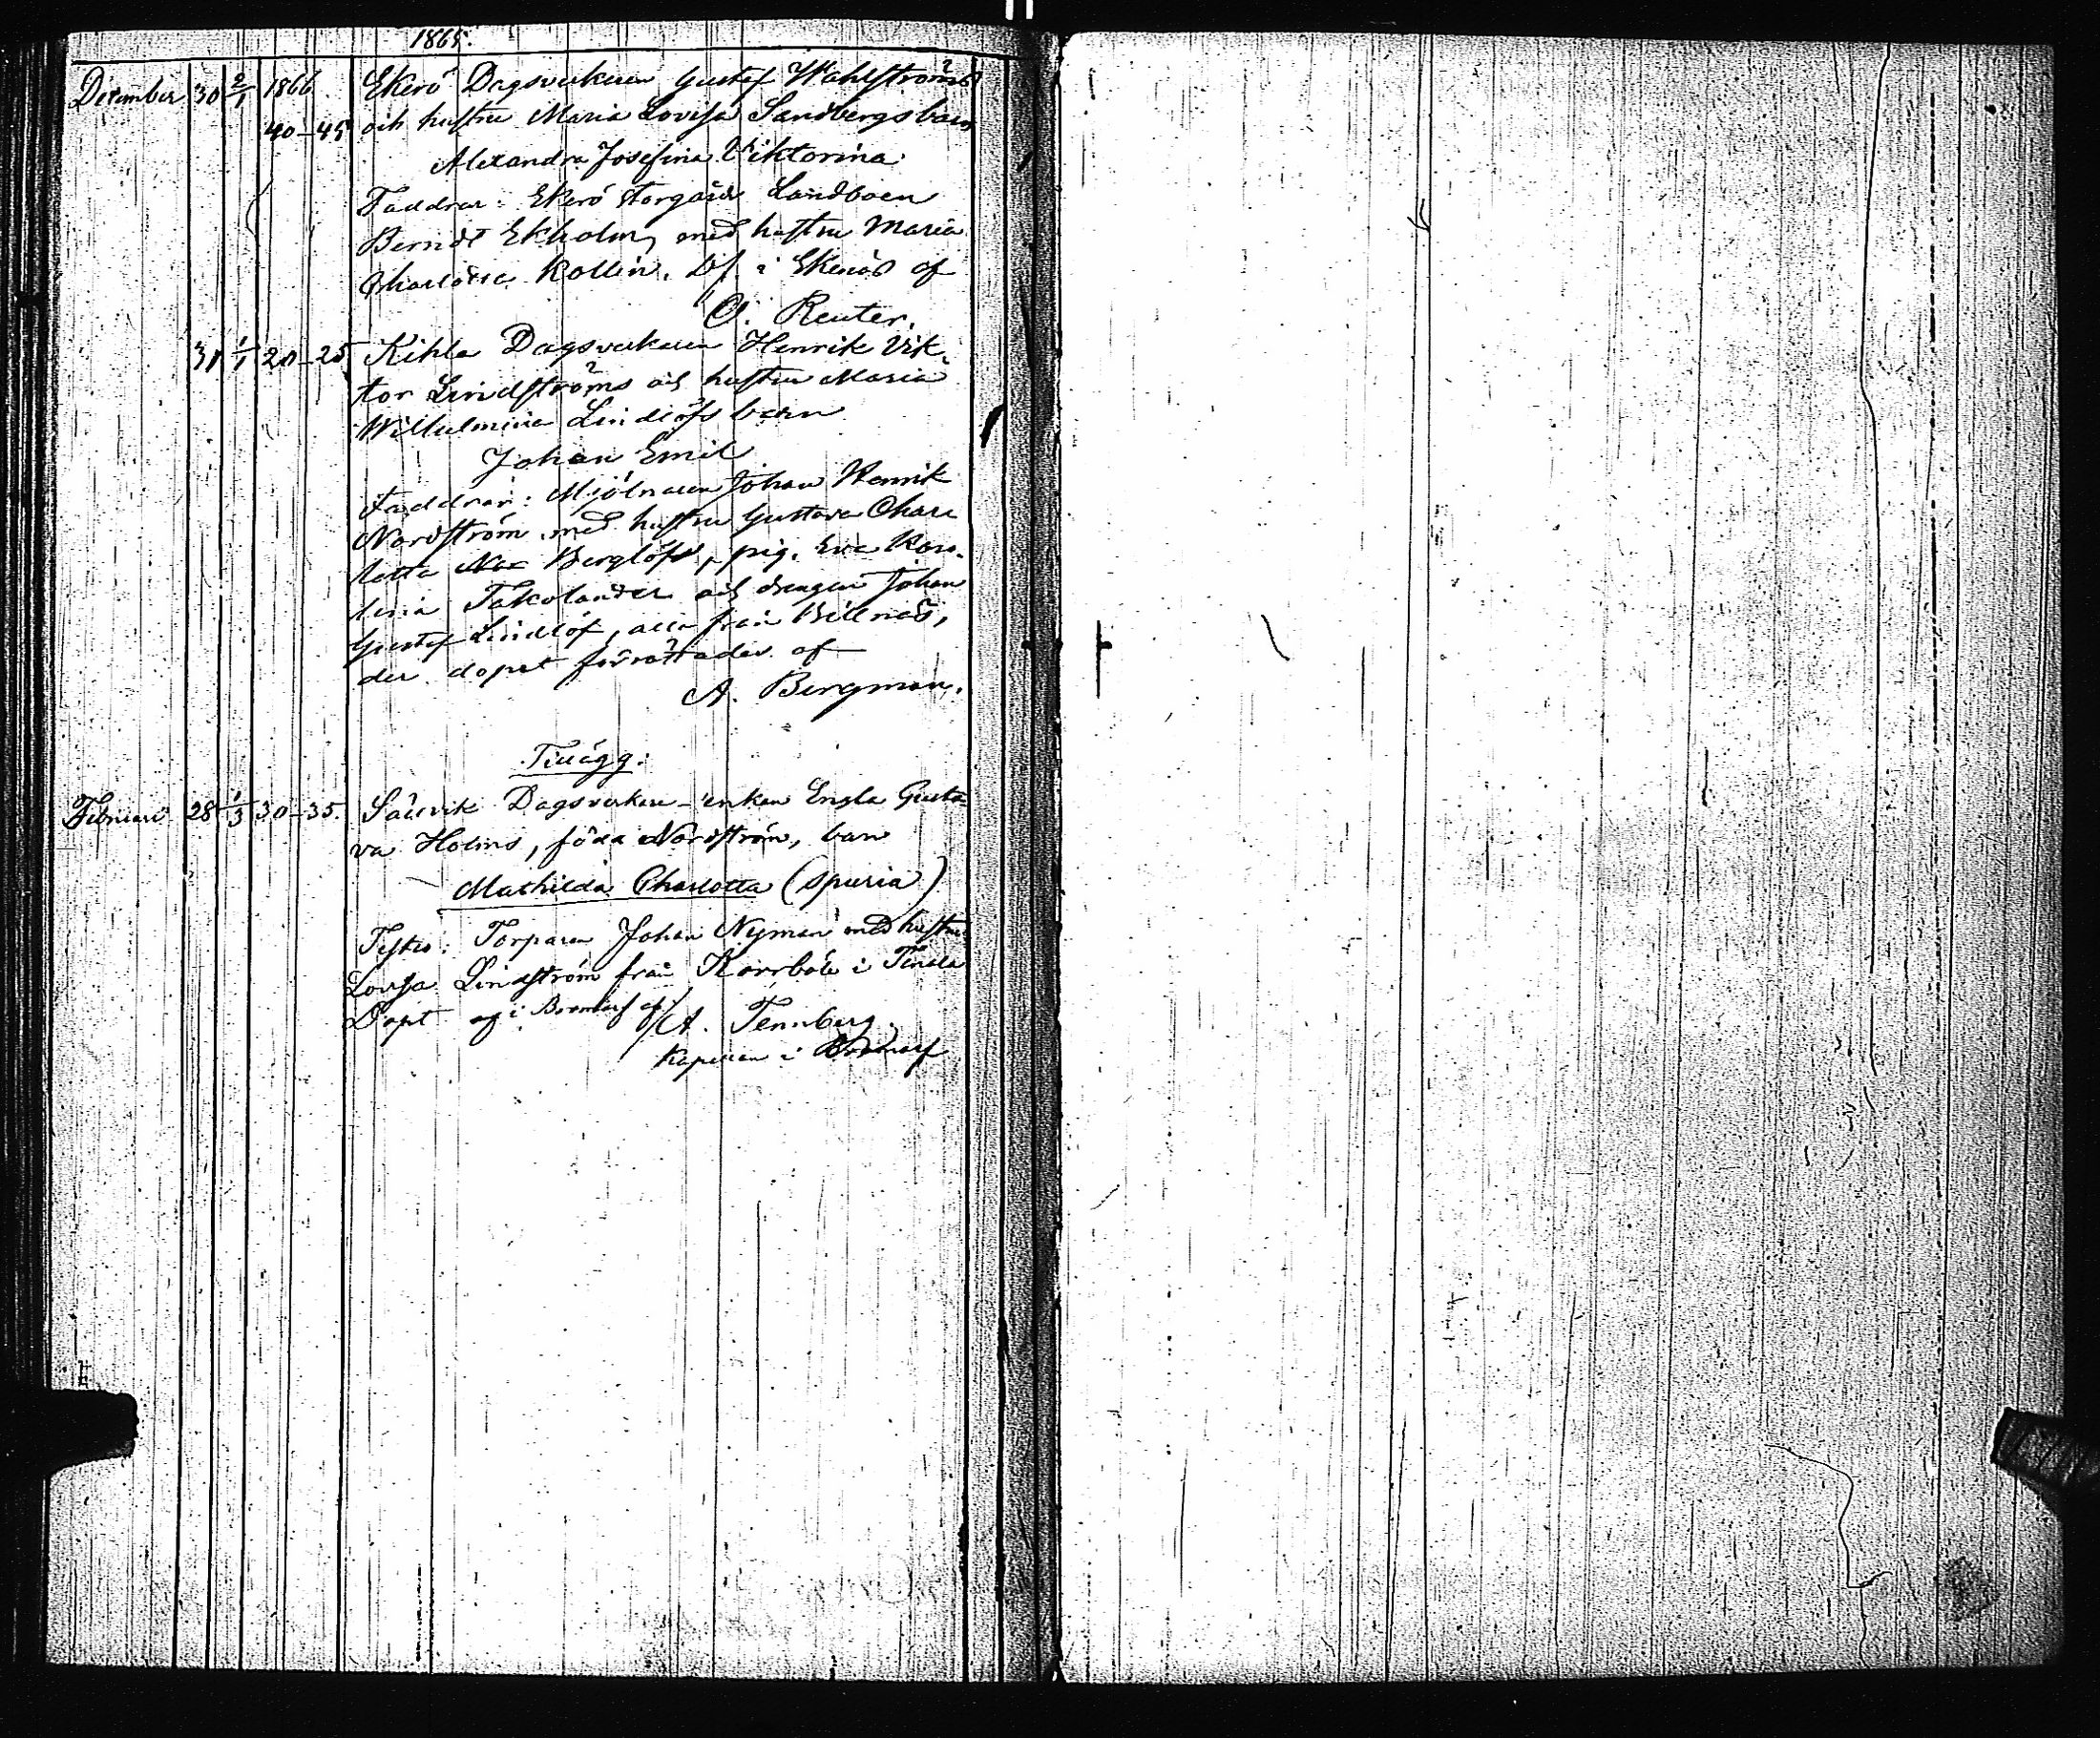 1865.
December 30 2/1 1866 Ekerö Dagsverkaren Gustef Wahlströms
40-45 och hustru Maria Lovisa Sandbergs barn
Alexandra Josefina Viktorina
Faddrar: Ekerö storgårds Landboen
Berndt Ekholm, med hustru Maria
Charlotta Kollin. Df. i Ekenäs af
O. Reuter.
31 1/1 20-25 Kihla Dagsverkaren Henrik Vik-
tor Lindströms och hustru Maria
Wilhelmina Lindlöfs barn
Johan Emil
Faddrar: Mjölnaren Johan Henrik
Nordström med hustru Gustava Char
lotta Berglöf, pig. Eva Karo-
lina Takolander och drengen Johan
Gustef Lindlöf, alla från Billnäs,
der dopet förrättades af
A. Bergman.
Tillägg:
Februari 28 1/3 30-35. Sällvik Dagsverkare-enkan Engla Gusta
va Holms, föda Nordström, barn
Mathilda Charlotta (spuria)
Testes: Torparen Johan Nyman med hustru
Lovisa Lindström från Korrböle i Tenala
Döpt i Bromarf af A. Tennberg
Kapellan i Bromarf